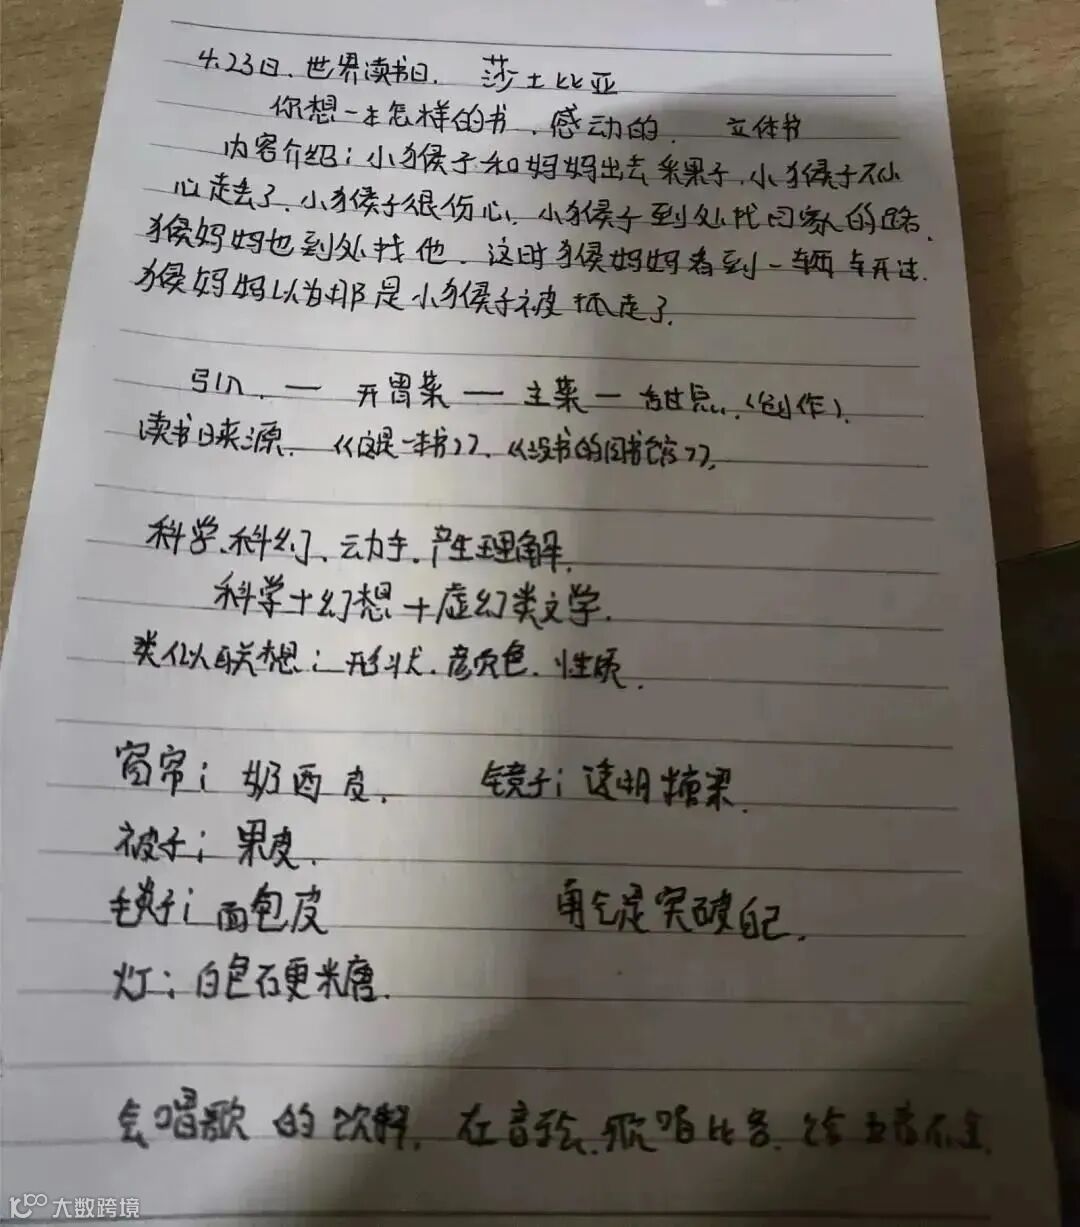 4.23日、世界读书日. 莎士比亚
你想一本怎样的书、感动的. 立体书
内容介绍：小猴子和妈妈出去采果子.小猴子不小
心走丢了.小猴子很伤心.小猴子到处找回家的路.
猴妈妈也到处找他.这时猴妈妈看到一辆车开过.
猴妈妈以为那是小猴子被抓走了.
引入.一 开胃菜 一 主菜 一 甜点.(创作).
读书日来源.《这是一本书》、《没书的图书馆》.
科学、科幻、动手.产生理解.
科学+幻想+虚幻类文学.
类似联想：形状.颜色.性质.
窗帘：奶酉皮. 镜子：透明糖
被子：果皮.
毯子：面包皮 突破自己.
灯：白色硬糖.
会唱歌的饮料.在音 歌唱比
大数跨境